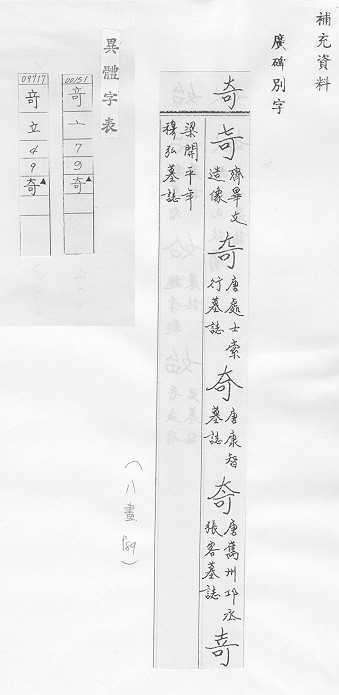 補充資料
廣碑別字
奇
奇
齊畢文
造像
奇
唐處士索
行墓誌
奇
唐康智
墓誌
奇
唐舊州邛丞
張客墓誌
竒
梁開平年
穆弘墓誌
異體字表
00151
竒
亠
7
9
奇▲
09717
竒
立
4
9
奇▲
(八畫
189)